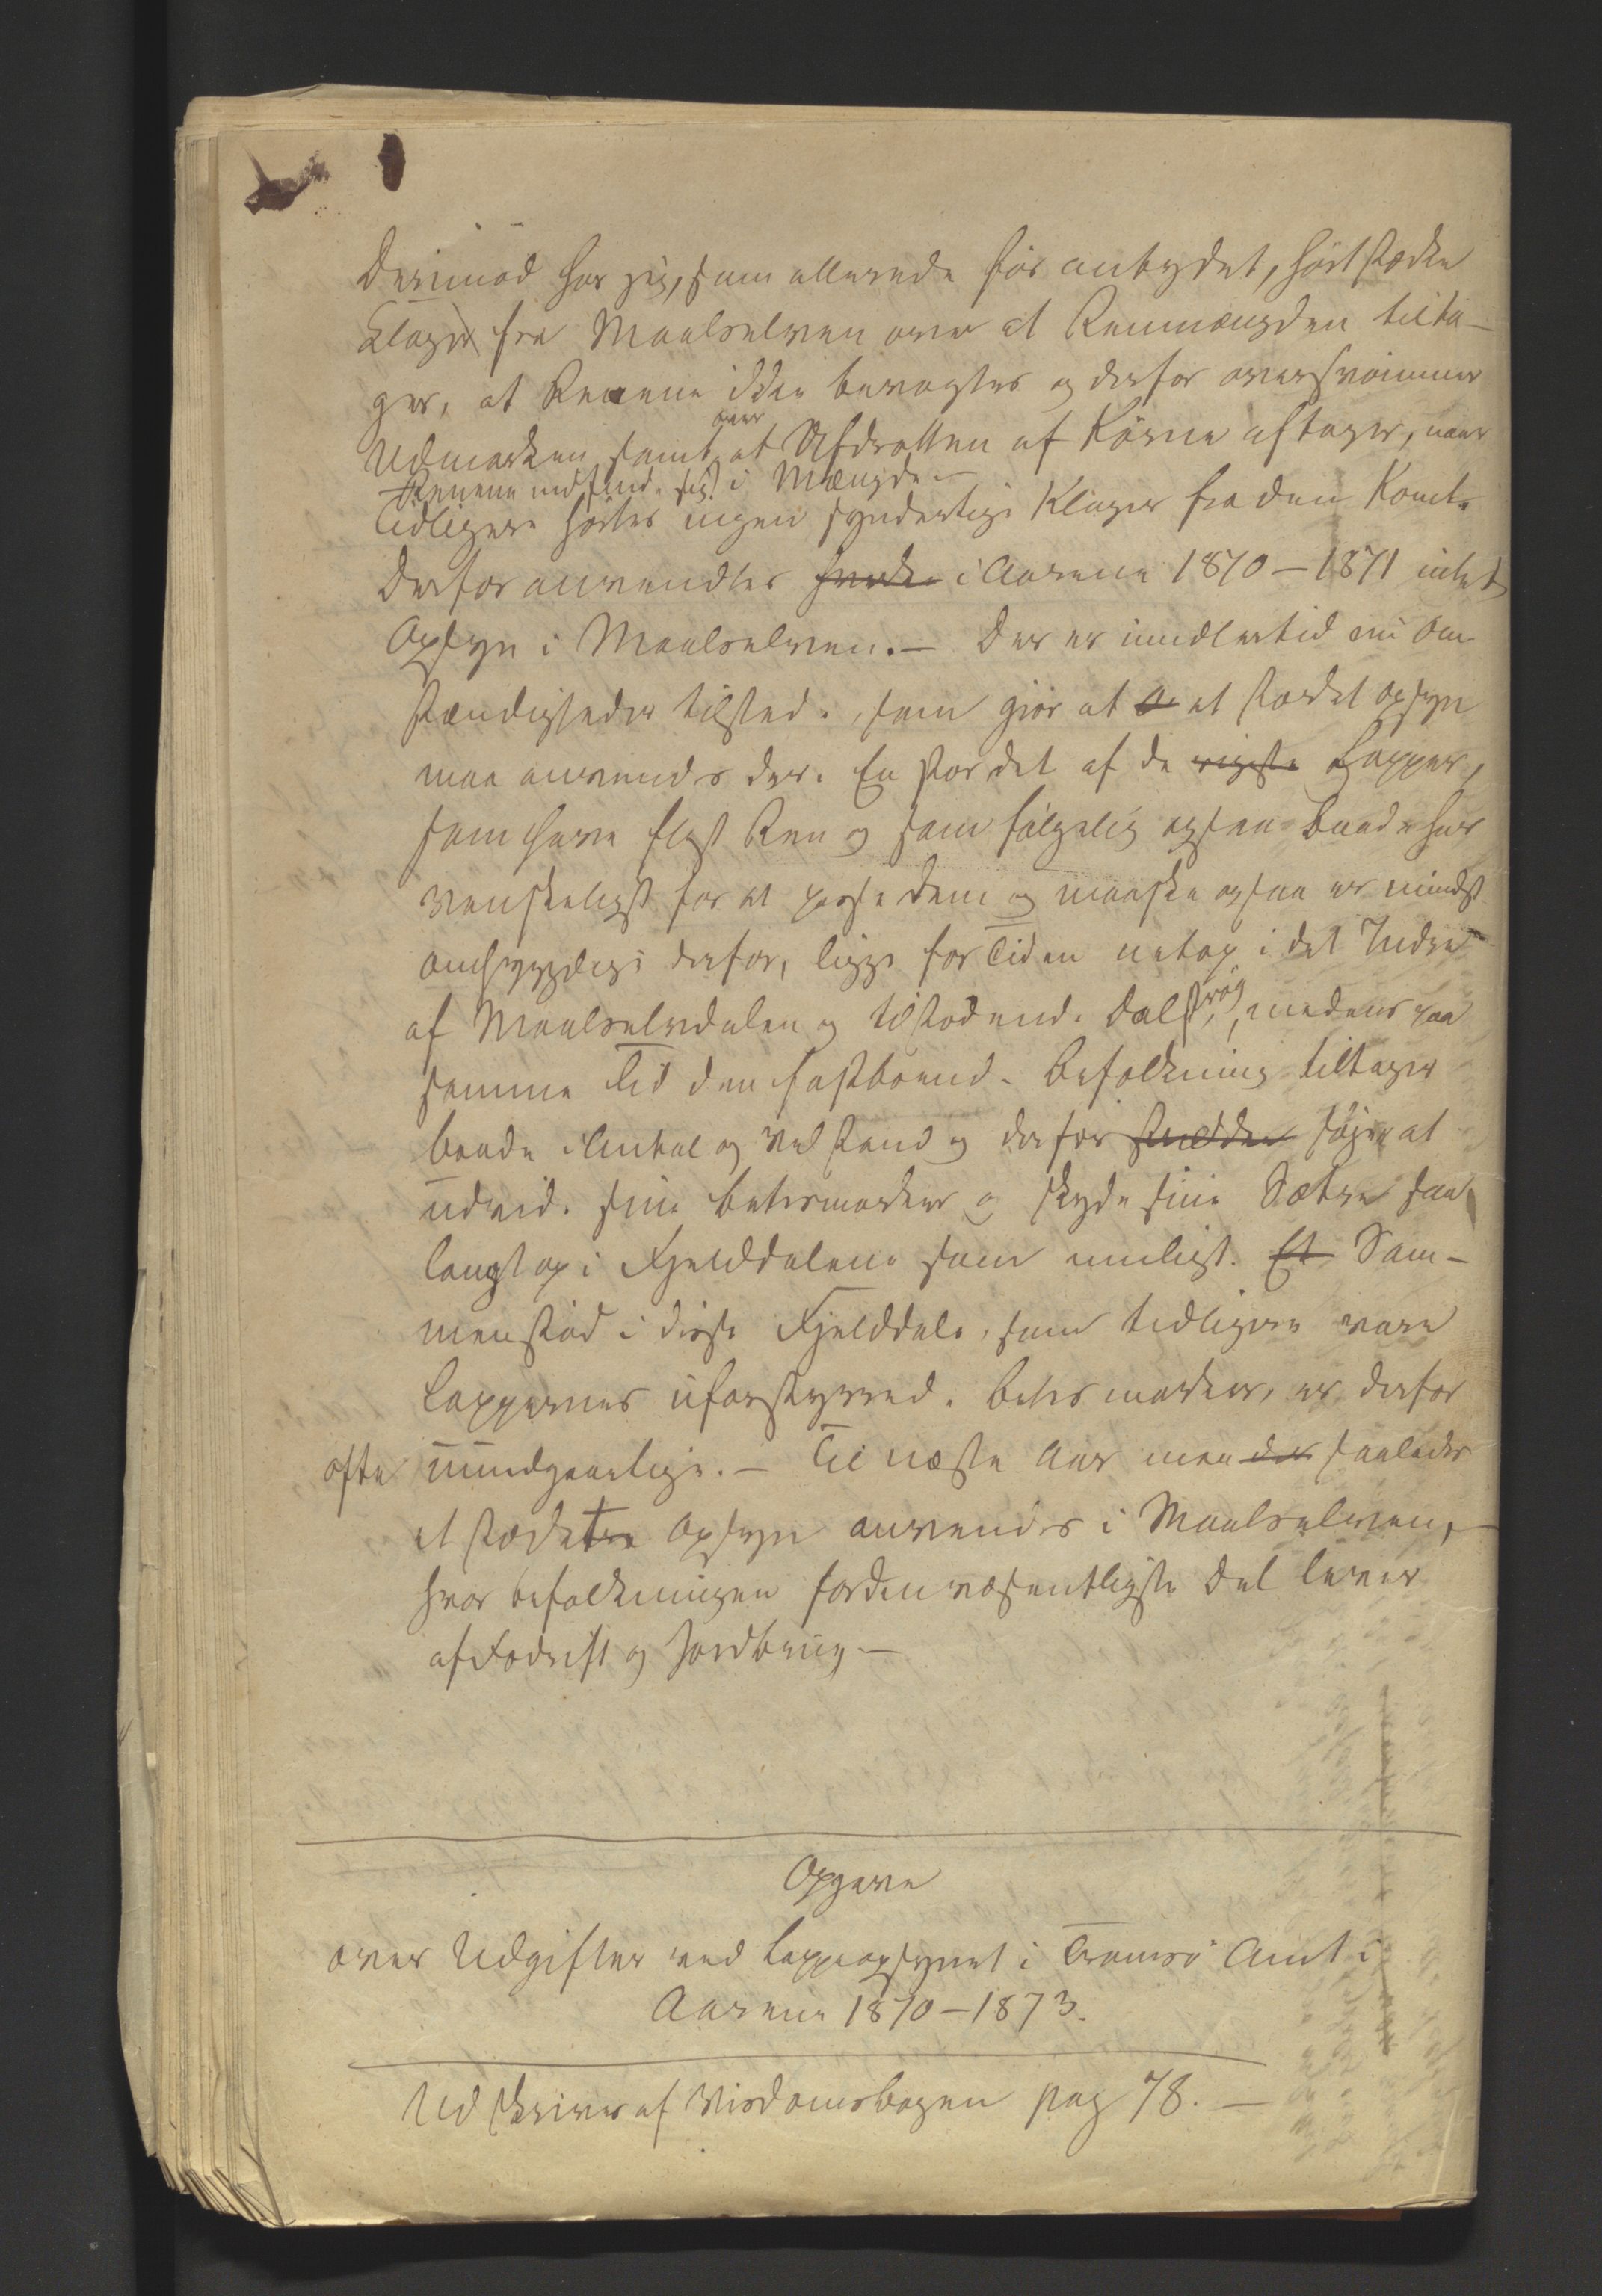 Derimod har jeg, som allerede før antydet, hørt stærke
Klager fra Maalselven over at Renmængden tilta-
ger, at Renene ikke bevogtes og derfor oversvømmer
Udmarken samt over at Afdrotten af Kørne aftager, naar
Renene indfinde sig i Mængde.-
Tidligere hørtes ingen synderlige Klager fra den Kant.
Derfor anvendtes i Aarene 1870-1871 intet
Opsyn i Maalselven.- Der er imidlertid nu Om-
stændigheder tilstede, som gjør at et stærkt Opsyn
maa anvendes der. En stor del af de rigeste Lapper,
som have flest Ren og som følgelig ogsaa baade har
vanskeligst for at passe dem og maaske ogsaa er mindst
omhyggelige derfor, ligge for Tiden netop i det Indre
af Maalselvdalen og tilstødende Dalstrøg, medens paa
samme Tid den fastboende Befolkning tiltager
baade i Antal og Velstand og derfor søger at
udvide sine Betesmarker og skyde sine Sætre saa
langt op i Fjelddalene som muligt. Et Sam-
menstød i disse Fjelddale, som tidligere vare
Lappernes uforstyrrede Betesmarker, er derfor
ofte uundgaaelige.- Til næste Aar maa der saaledes
et stærkt Opsyn anvendes i Maalselven,
hvor befolkningen for den væsentligste Del lever
af Fædrift og Jordbrug.-
Opgave
over Udgifter ved Lappeopsynet i Tromsø Amt i
Aarene 1870-1873.
Udskrives af Visdomsbogen pag 78.-